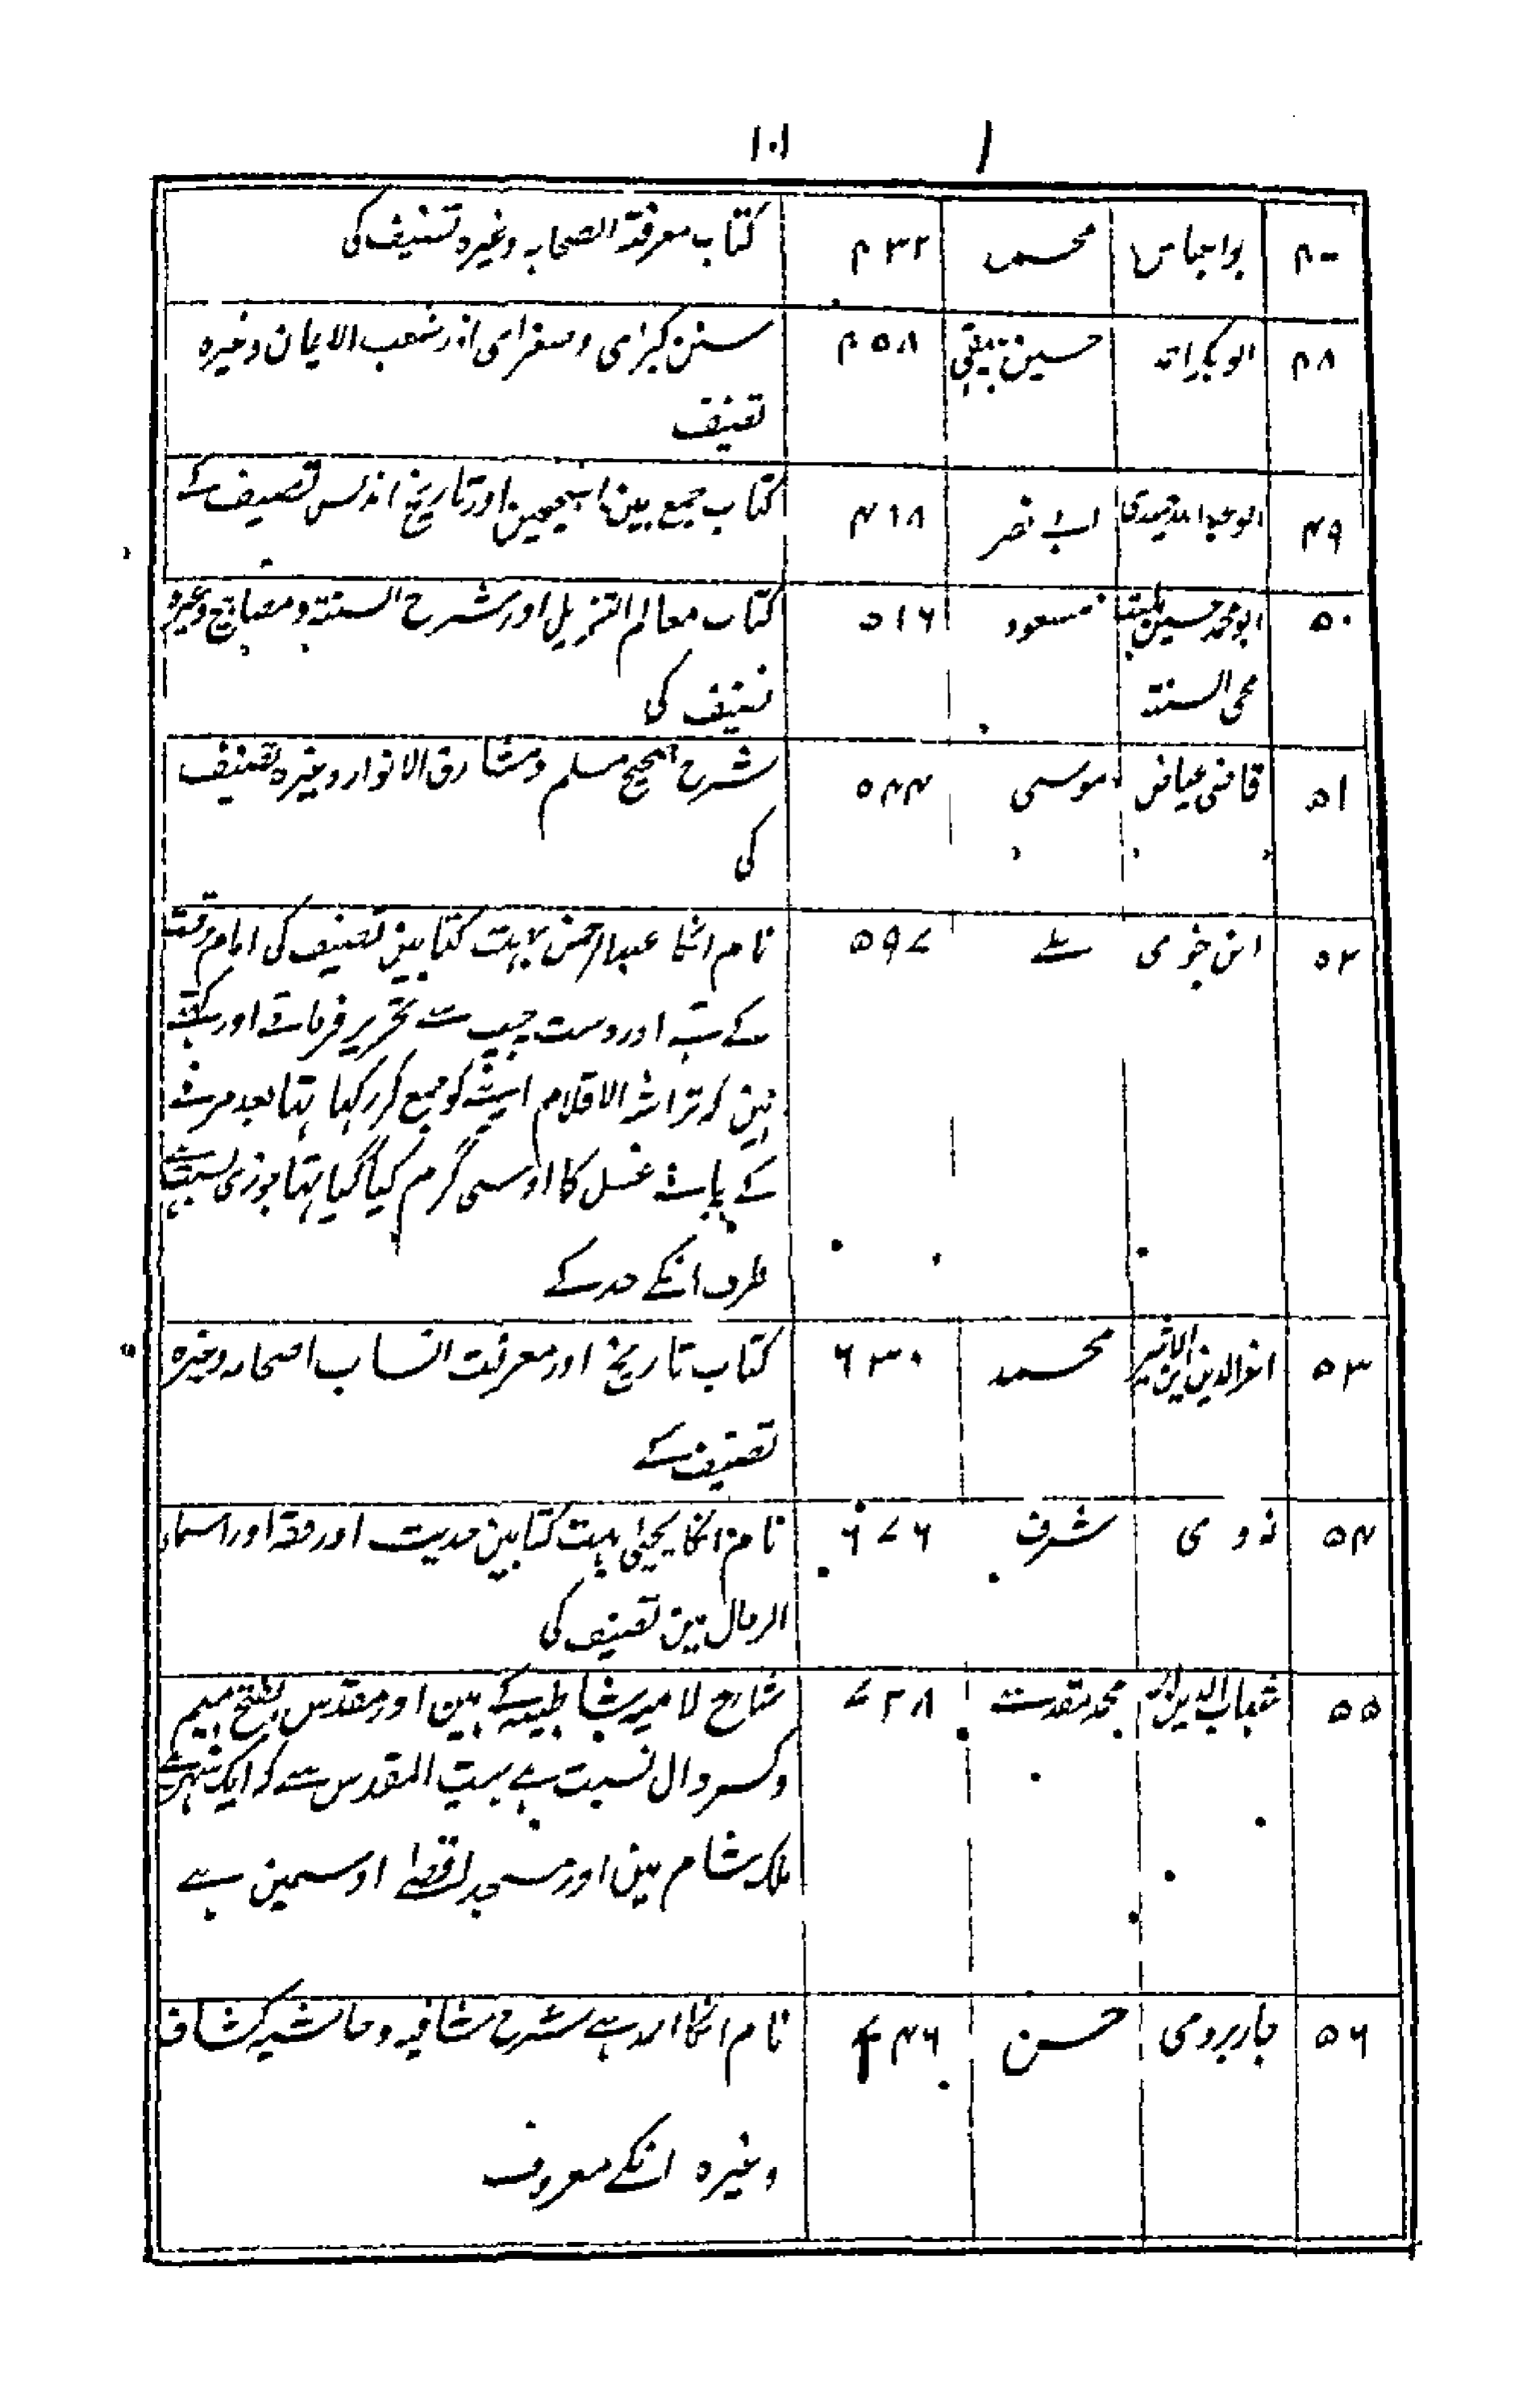 ۱۰۱
۴۷ ابوالعباس محمد ۴۳۲ کتاب معرفۃ الصحابہ وغیرہ تصنیف کی
۴۸ ابوبکر احمد حسین بیہقی ۴۵۸ سنن کبرای و صغرای اور شعب الایمان وغیرہ
تصنیف
۴۹ ابو عبد اللہ حمیدی ابی نصر ۴۱۸ کتاب جمع بین الصحیحین اور تاریخ اندلس تصنیف کے
۵۰ ابو محمد حسین مسعود ۵۱۶ کتاب معالم التنزیل اور شرح السنۃ و مصابیح وغیرہ
محی السنۃ تصنیف کی
۵۱ قاضی عیاض موسی ۵۴۴ شرح صحیح مسلم و مشارق الانوار وغیرہ تصنیف
کی
۵۲ ابن جوزی علے ۵۹۷ نام انکا عبدالرحمن بہت کتابین تصنیف کی امام وقت
کے تہے اور دست چپ سے تحریر فرماتے اور کہتے
ہین کہ تراشہ الاقلام اپنے کو جمع کر رکہا تہا بعد مرنے
کے پانے غسل کا اوسی گرم کیا گیا تہا جوزی نسبت ہے
طرف انکے جد کے
۵۳ اعز الدین ابن الاثیر محمد ۶۳۰ کتاب تاریخ اور معرفت انساب اصحاب وغیرہ
تصنیف کے
۵۴ نووی شرف ۶۷۶ نام انکا یحیٰی بہت کتابین حدیث اور فقہ اور اسماء
الرجال مین تصنیف کی
۵۵ شہاب الدین محمد مقدسے ۷۲۸ شارح لامیہ شاطبیہ کے ہین اور مقدس بفتح میم
و کسر دال نسبت ہے بیت المقدس سے کہ ایک شہر ہے
ملک شام مین اور مسجد اقصے اوسمین ہے
۵۶ جاربردی حسن ۷۴۶ نام انکا احمد ہے شرح شافیہ و حاشیہ کشاف
وغیرہ انکے معروف